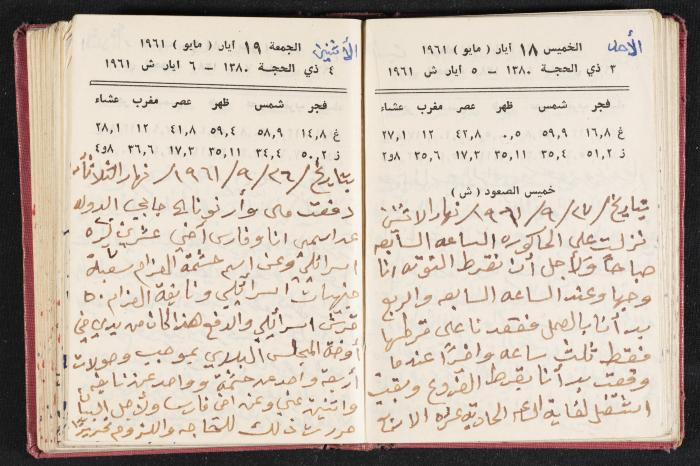 الأحد
الخميس ١٨ آيار ( مايو ) ١٩٦١
٣ ذي الحجـة ١٣٨٠ – ٥ آيار ش ١٩٦١
فجر شمس ظهر عصر مغرب عشاء
غ ١٦,٨ ٥٩,٩ ٠,٥ ٤٢,٨ ١٢ ٢٧,١
ز ٥١,٢ ٣٥,٤ ٣٥,١١ ١٧,٣ ٣٥,٦ ٨و٢
خميس الصعود ( ش )
بتاريخ /٢٧/ ٩/ ١٩٦١/ نهار الاثنين
نزلت على الحاكوره الساعه السابعه
صباحاً ولأجل أن نقرط التوته انا
وجيها وعند الساعه السابعه والربع
بدأنا بالعمل فقعدنا على قرطها
فقط ثلث ساعه واخراً عندما
وقعت بدأنا نقرط الفروع وبقيت
اشتغل لغاية الساعه الحادية عشره الا ربع
الأثنين
الجمعة ١٩ آيار ( مايو ) ١٩٦١
٤ ذي الحجـة ١٣٨٠ – ٦ آيار ش ١٩٦١
فجر شمس ظهر عصر مغرب عشاء
غ ١٤,٨ ٥٨,٩ ٥٩,٤ ٤١,٨ ١٢ ٢٨,١
ز ٥٠,٢ ٣٤,٤ ٣٥,١١ ١٧,٣ ٣٦,٦ ٤و٨
بتاريخ /٢٦/ ٩/ ١٩٦١/ نهار الثلاثاء
دفعت مال وأرنونا جابي الدوله
عن اسمي انا وفارس أخي عشرين ليره
اسرائيلي وعن اسم حشمة العزام سبعة
جنيهات اسرائيلي ونايفة العزام ٥٠
قرش اسرائيلي والدفع هذا كان من يدي في
أوضة المجلس البلدي بموجب وصولات
أربعة واحد عن حشمة وواحد عن نايفه
واثنين عني وعن اخي فارس ولأجل البيان
حررت ذلك للحاجه واللزوم تحريراً